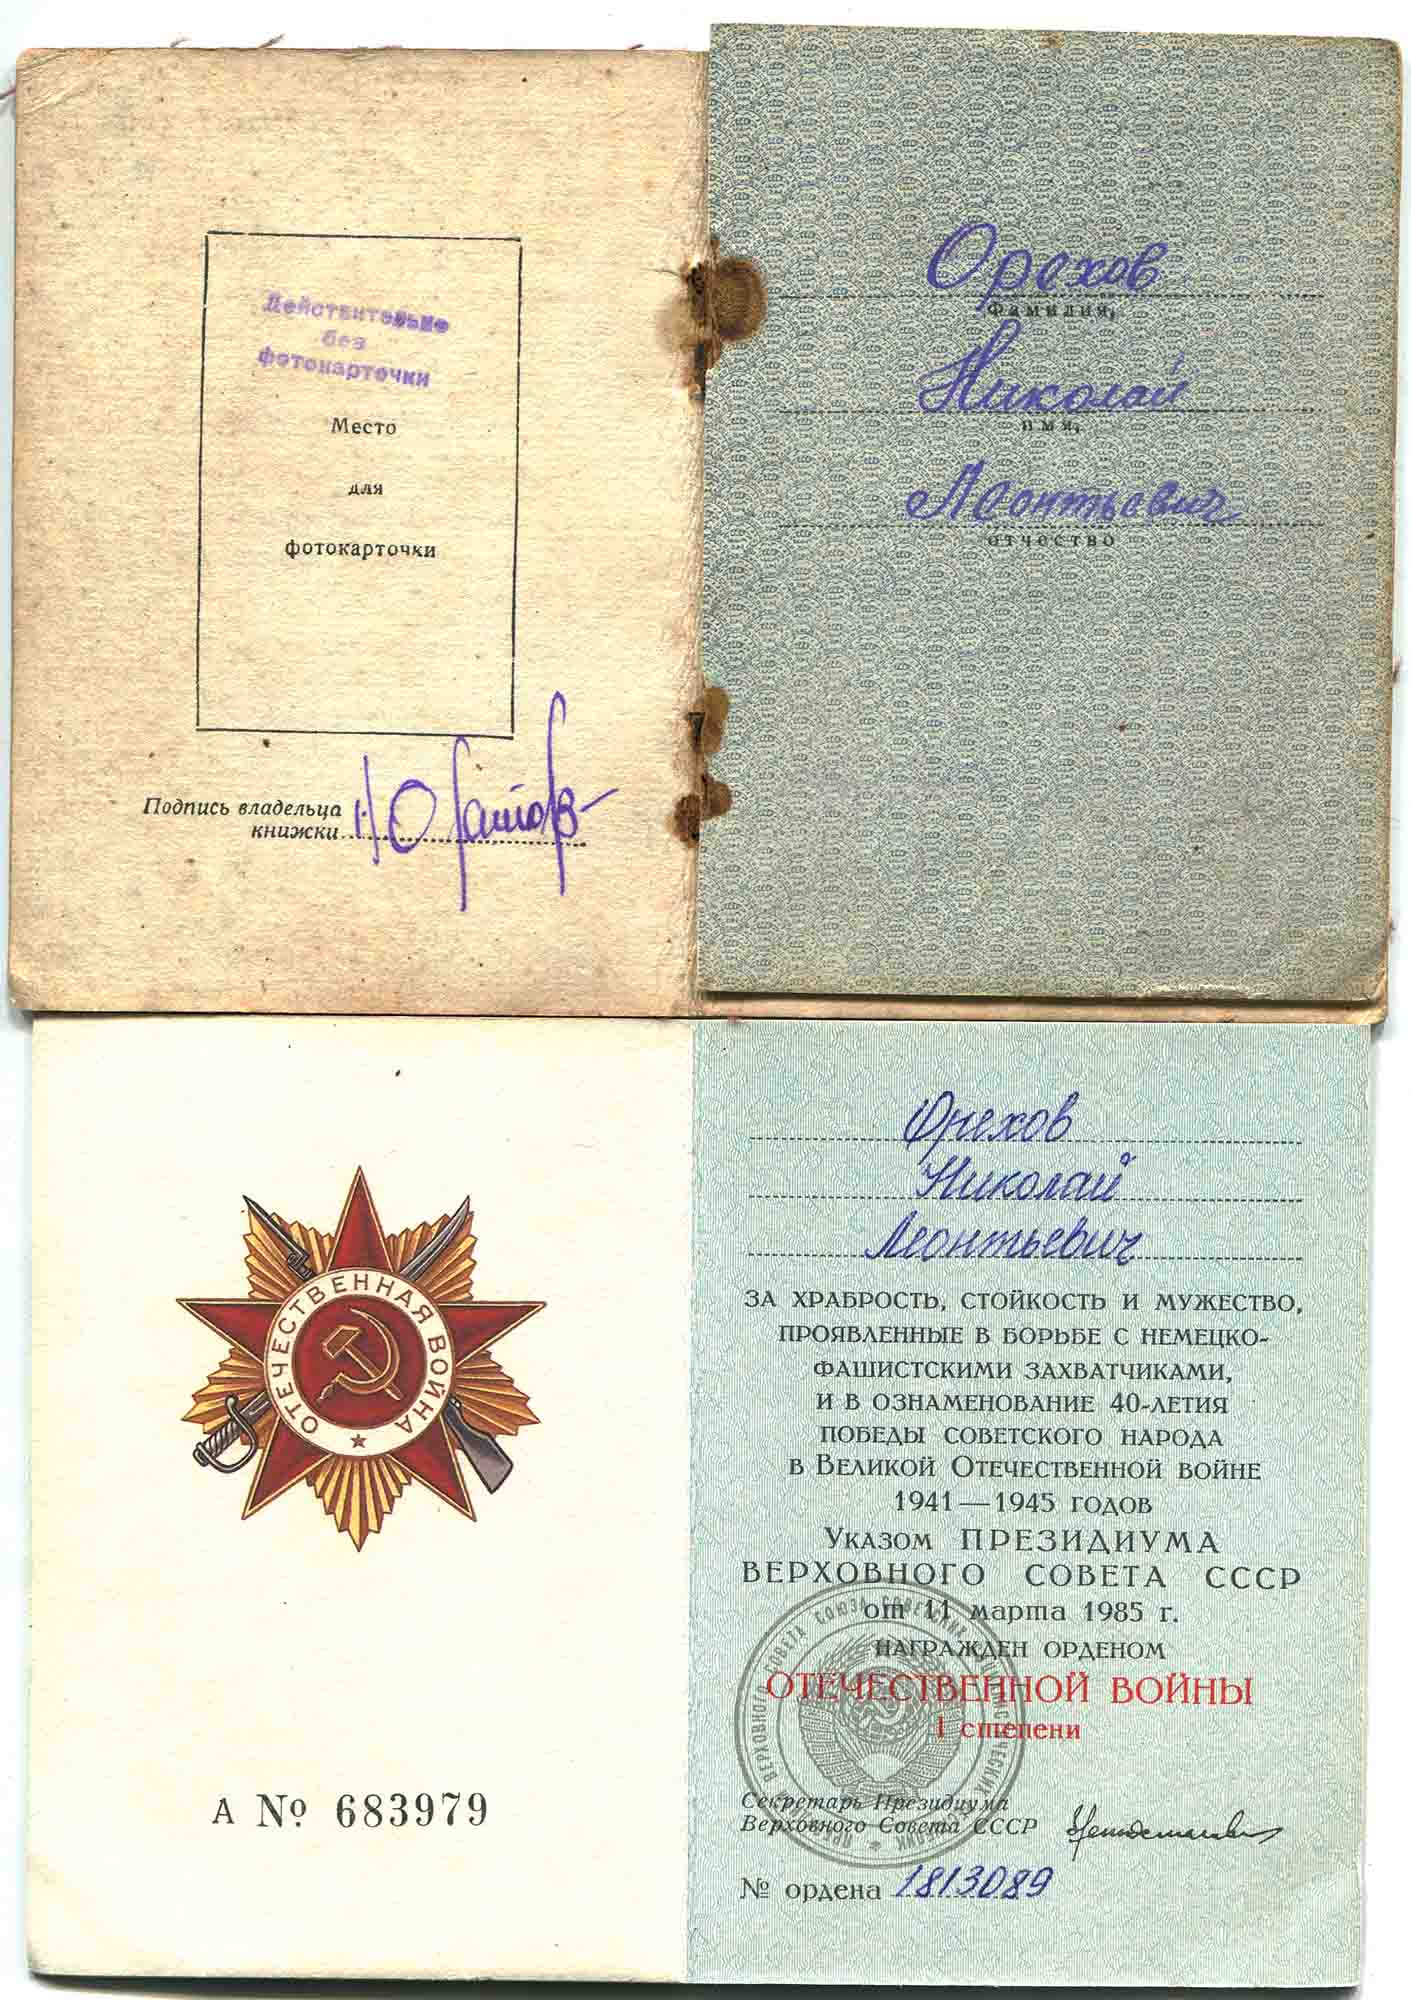 Действительно
без
фотокарточки
Место
для
фотокарточки
Подпись владельца
книжки
Орехов
фамилия,
Николай
имя,
Леонтьевич
отчество
ОТЕЧЕСТВЕННАЯ ВОЙНА
А № 683979
Орехов
Николай
Леонтьевич
ЗА ХРАБРОСТЬ, СТОЙКОСТЬ И МУЖЕСТВО,
ПРОЯВЛЕННЫЕ В БОРЬБЕ С НЕМЕЦКО-
ФАШИСТСКИМИ ЗАХВАТЧИКАМИ,
И В ОЗНАМЕНОВАНИЕ 40-ЛЕТИЯ
ПОБЕДЫ СОВЕТСКОГО НАРОДА
В ВЕЛИКОЙ ОТЕЧЕСТВЕННОЙ ВОЙНЕ
1941—1945 ГОДОВ
УКАЗОМ ПРЕЗИДИУМА
ВЕРХОВНОГО СОВЕТА СССР
от 11 марта 1985 г.
НАГРАЖДЕН ОРДЕНОМ
ОТЕЧЕСТВЕННОЙ ВОЙНЫ
I степени
Секретарь Президиума
Верховного Совета СССР
№ ордена 1813089